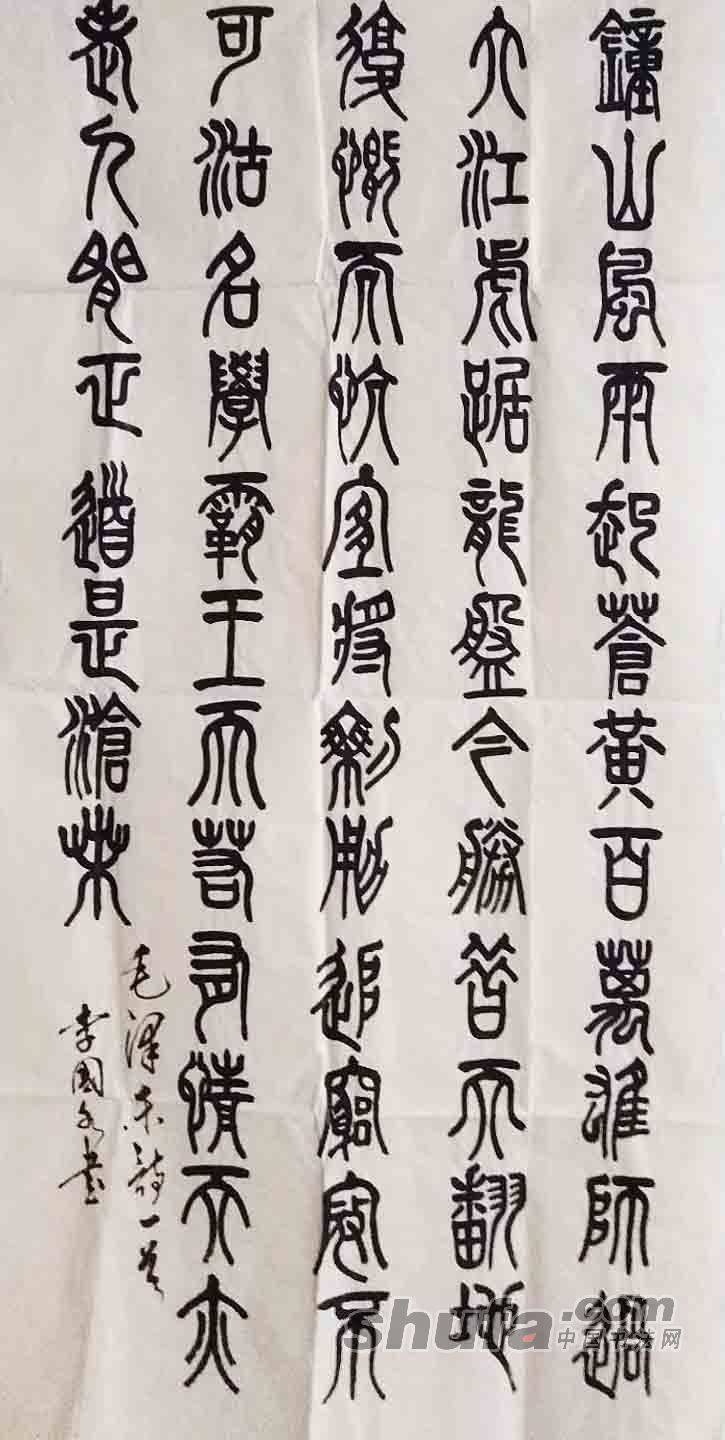 鐘山風雨起蒼黃百萬雄師過
大江虎踞龍盤今勝昔天翻地
復慨而忼宜將剩勇追窮寇不
可沽名學霸王天若有情天亦
老人間正道是滄桑
毛澤东詩一首
李國書
shufa.com
中国书法网